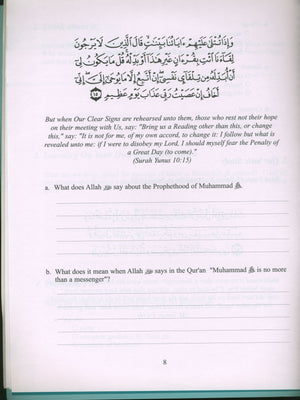 وَإِذَا تُتْلَىٰ عَلَيْهِمْ ءَايَاتُنَا بَيِّنَٰتٍ قَالَ ٱلَّذِينَ لَا يَرْجُونَ
لِقَآءَنَا ٱئْتِ بِقُرْءَانٍ غَيْرِ هَٰذَآ أَوْ بَدِّلْهُ قُلْ مَا يَكُونُ لِىٓ
أَنْ أُبَدِّلَهُۥ مِن تِلْقَآئِ نَفْسِىٓ إِنْ أَتَّبِعُ إِلَّا مَا يُوحَىٰٓ إِلَىَّ إِنِّىٓ
أَخَافُ إِنْ عَصَيْتُ رَبِّى عَذَابَ يَوْمٍ عَظِيمٍ ١٥
But when Our Clear Signs are rehearsed unto them, those who rest not their hope
on their meeting with Us, say: "Bring us a Reading other than this, or change
this," say: "It is not for me, of my own accord, to change it: I follow but what is
revealed unto me: if I were to disobey my Lord, I should myself fear the Penalty of
a Great Day (to come)."
(Surah Yunus 10:15)
a. What does Allah ﷻ say about the Prophethood of Muhammad ﷺ.
b. What does it mean when Allah ﷻ says in the Qur'an "Muhammad ﷺ is no more
than a messenger"?
8